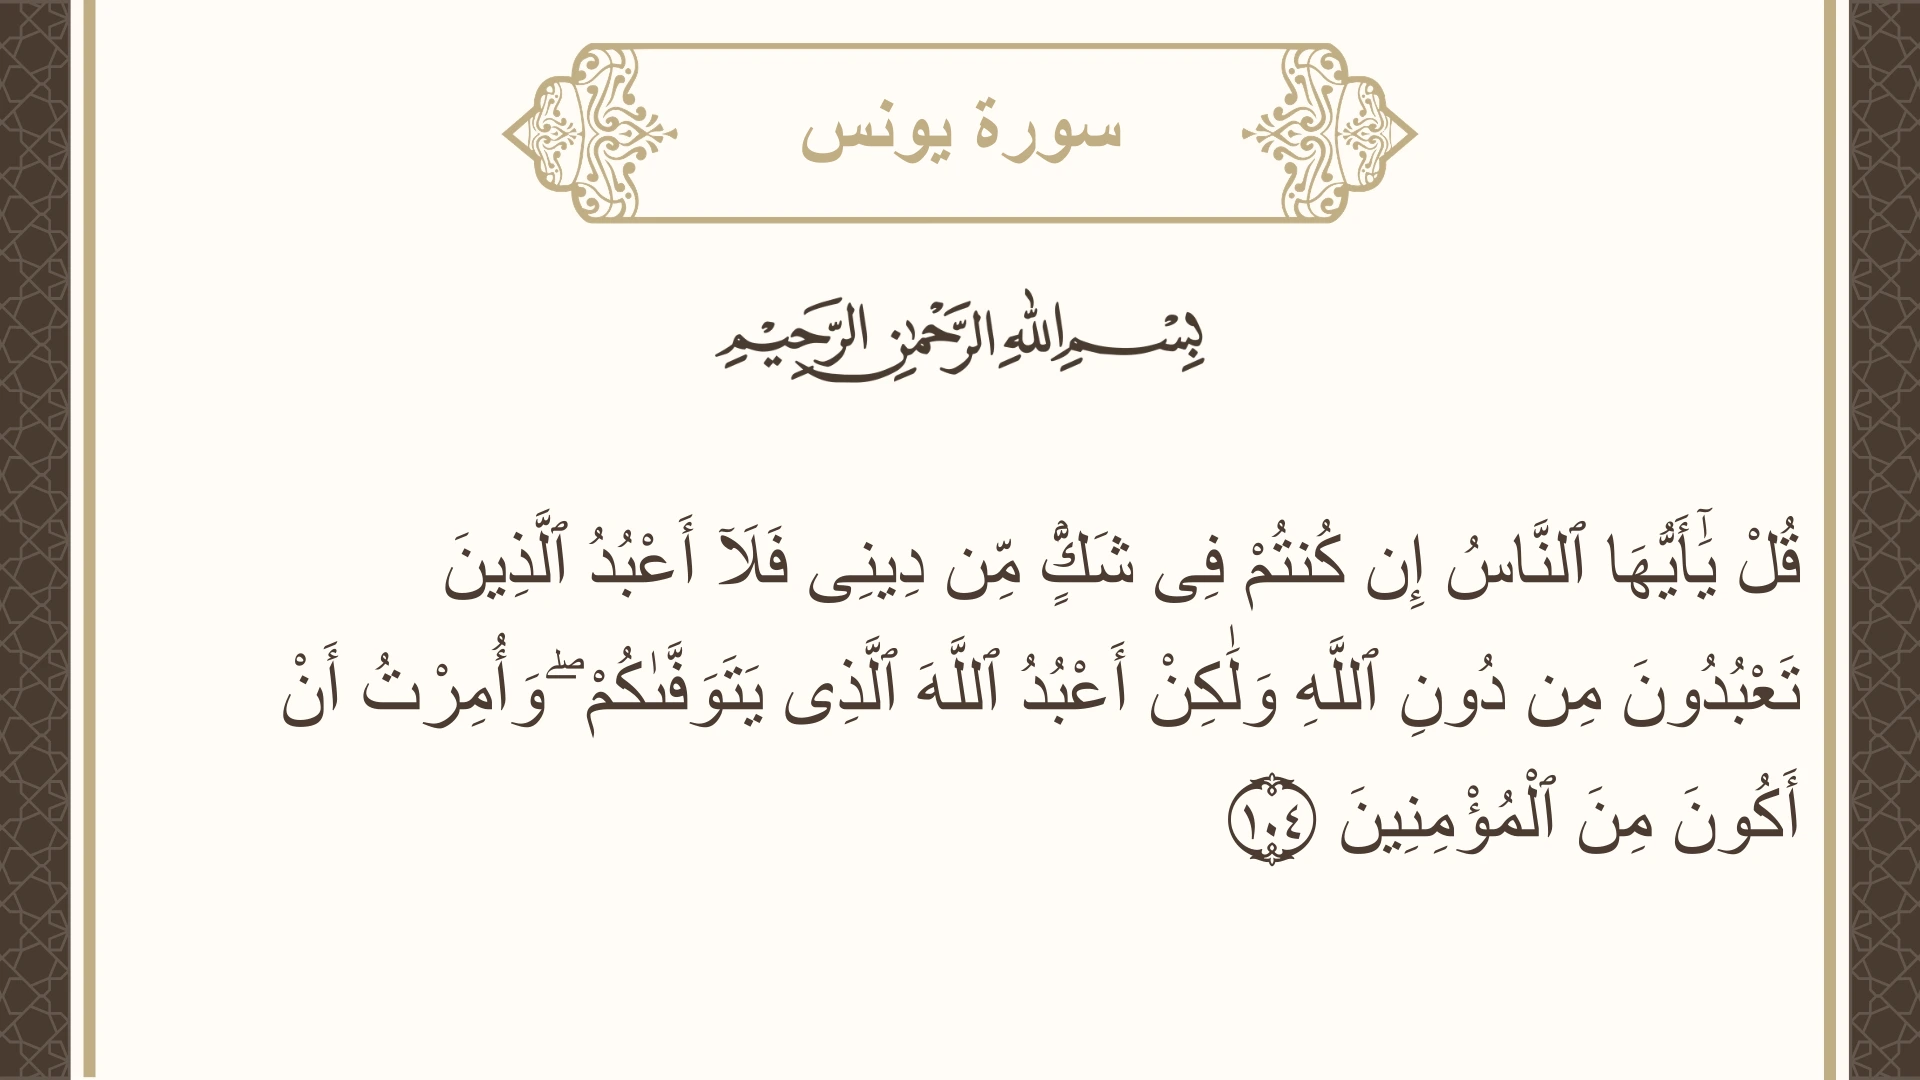 سورة يونس
بِسْمِ اللهِ الرَّحْمٰنِ الرَّحِيْمِ
قُلْ يَٰٓأَيُّهَا ٱلنَّاسُ إِن كُنتُمْ فِى شَكٍّ مِّن دِينِى فَلَآ أَعْبُدُ ٱلَّذِينَ
تَعْبُدُونَ مِن دُونِ ٱللَّهِ وَلَٰكِنْ أَعْبُدُ ٱللَّهَ ٱلَّذِى يَتَوَفَّىٰكُمْ ۖ وَأُمِرْتُ أَنْ
أَكُونَ مِنَ ٱلْمُؤْمِنِينَ ١٠٤